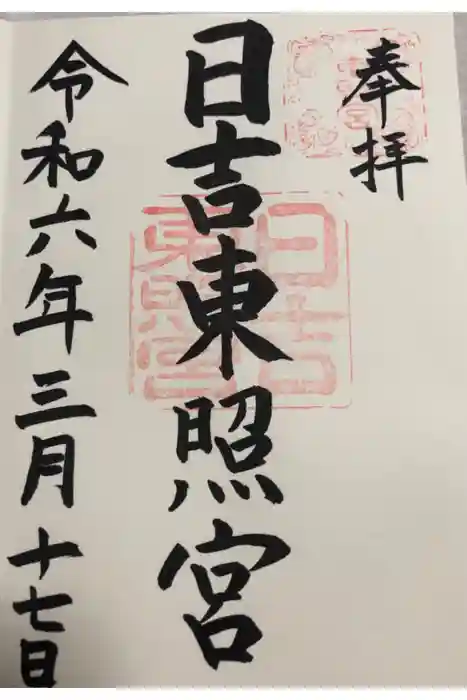 奉拝
日吉東照宮
日吉東照宮
令和六年三月十七日